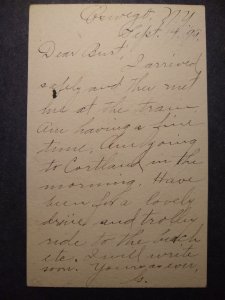 Oswego, N.Y.
Sept. 4, '99
Dear Burt,
I arrived
safely and they met
me at the train,
Am having a fine
time. Am going
to Cortland in the
morning. Have
been for a lovely
drive and trolley
ride to the beach
etc. I will write
soon. Yours as ever,